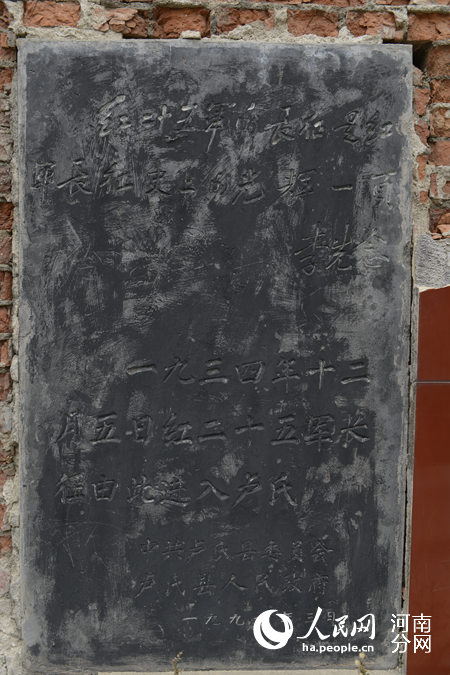 红廿五军的长征是红
军长征史上的光辉一页
李先念
一九三四年十二
月五日红二十五军长
征由此进入卢氏
中共卢氏县委员会
卢氏县人民政府
一九九
人民网
ha.people.com.cn
河南
分网